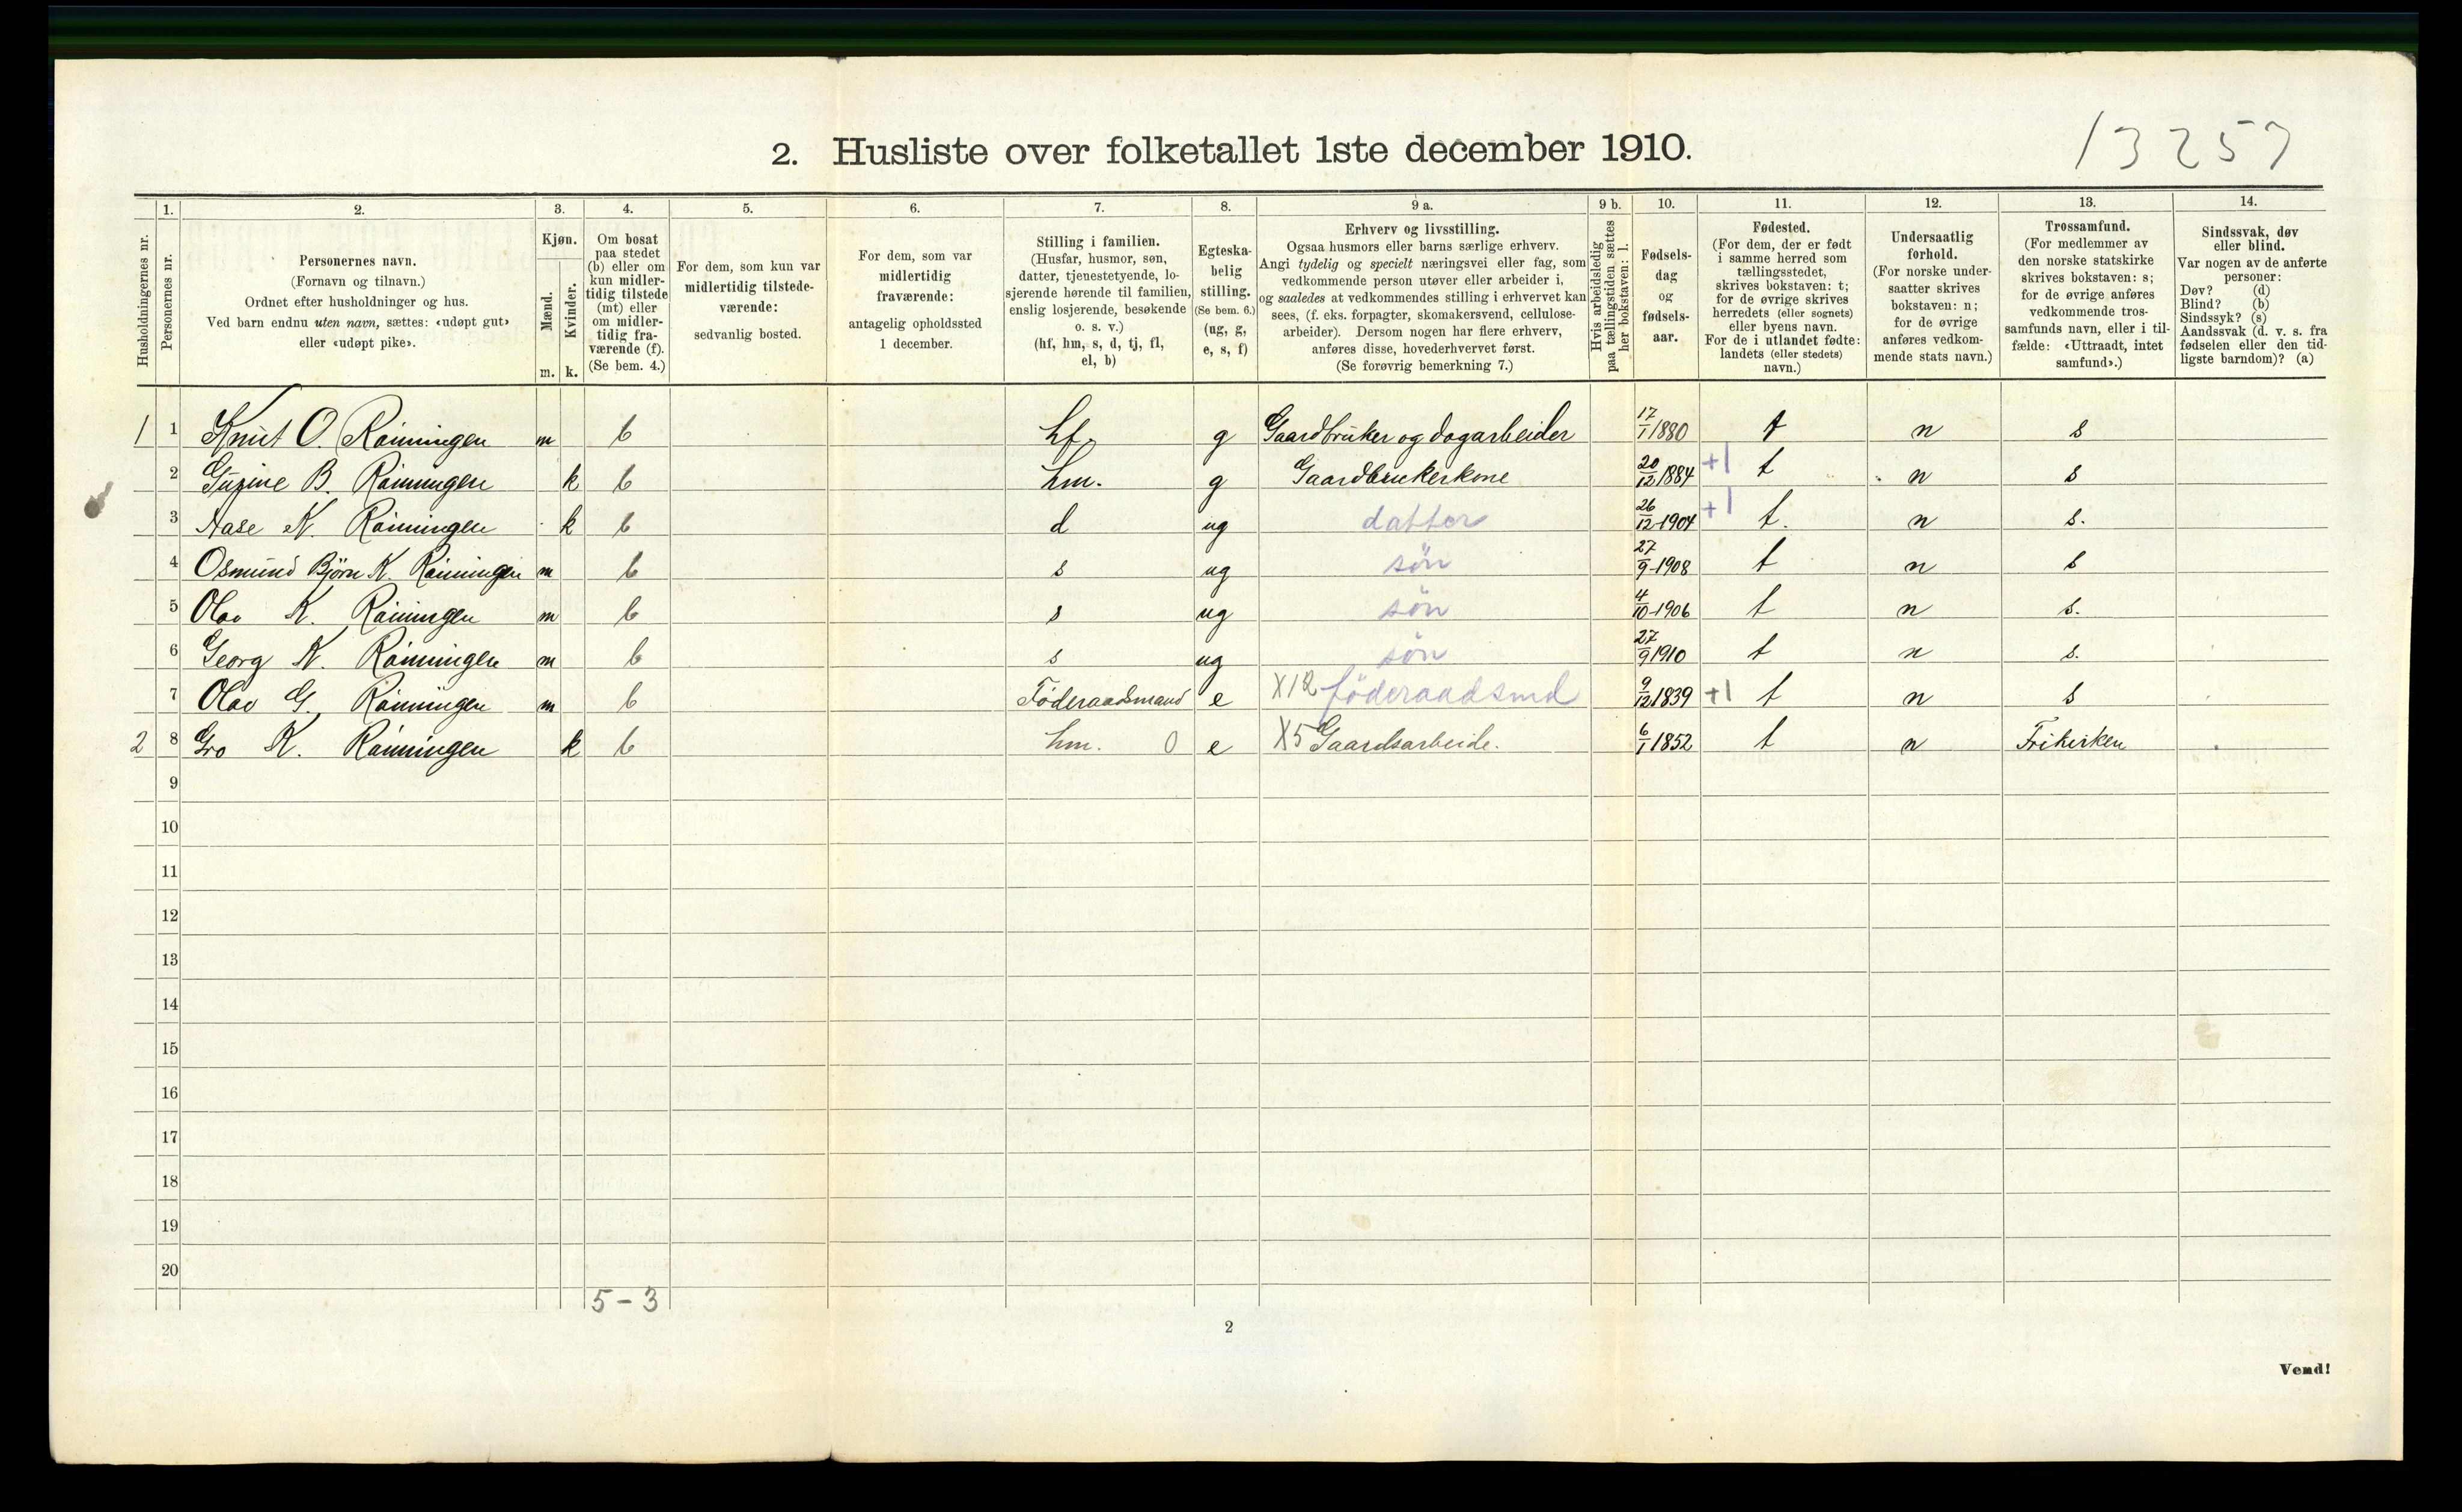 13257
2. Husliste over folketallet 1ste december 1910.
Husholdningernes nr.
1.
Personernes nr.
2.
Personernes navn.
(Fornavn og tilnavn.)
Ordnet efter husholdninger og hus.
Ved barn endnu uten navn, sættes: «udøpt gut»
eller «udøpt pike».
3.
Kjøn.
Mænd.
Kvinder.
m. k.
4.
Om bosat
paa stedet
(b) eller om
kun midler-
tidig tilstede
(mt) eller
om midler-
tidig fra-
værende (f).
(Se bem. 4.)
5.
For dem, som kun var
midlertidig tilstede-
værende:
sedvanlig bosted.
6.
For dem, som var
midlertidig
fraværende:
antagelig opholdssted
1 december.
7.
Stilling i familien.
(Husfar, husmor, søn,
datter, tjenestetyende, lo-
sjerende hørende til familien,
enslig losjerende, besøkende
o. s. v.)
(hf, hm, s, d, tj, fl,
el, b)
8.
Egteska-
belig
stilling.
(Se bem. 6.)
(ug, g,
e, s, f)
9 a.
Erhverv og livsstilling.
Ogsaa husmors eller barns særlige erhverv.
Angi tydelig og specielt næringsvei eller fag, som
vedkommende person utøver eller arbeider i,
og saaledes at vedkommendes stilling i erhvervet kan
sees, (f. eks. forpagter, skomakersvend, cellulose-
arbeider). Dersom nogen har flere erhverv,
anføres disse, hovederhvervet først.
(Se forøvrig bemerkning 7.)
9 b.
Hvis arbeidsledig
paa tællingstiden sættes
her bokstaven: l.
10.
Fødsels-
dag
og
fødsels-
aar.
11.
Fødested.
(For dem, der er født
i samme herred som
tællingsstedet,
skrives bokstaven: t;
for de øvrige skrives
herredets (eller sognets)
eller byens navn.
For de i utlandet fødte:
landets (eller stedets)
navn.)
12.
Undersaatlig
forhold.
(For norske under-
saatter skrives
bokstaven: n;
for de øvrige
anføres vedkom-
mende stats navn.)
13.
Trossamfund.
(For medlemmer av
den norske statskirke
skrives bokstaven: s;
for de øvrige anføres
vedkommende tros-
samfunds navn, eller i til-
fælde: «Uttraadt, intet
samfund».)
14.
Sindssvak, døv
eller blind.
Var nogen av de anførte
personer:
Døv? (d)
Blind? (b)
Sindssyk? (s)
Aandssvak (d. v. s. fra
fødselen eller den tid-
ligste barndom)? (a)
1 1 Knut O. Rönningen m b hf g Gaardbruker og dagarbeider 17/1 1880 t n s
2 B. Rönningen k b hm. g Gaardbrukerkone 20/12 1884 +1 t n s
3 Aase K. Rönningen k b d ug datter 26/12-1904 +1 t. n s.
4 Osmund Björn K. Rönningen m b s ug sön 27/9-1908 t n s
5 Olav K. Rönningen m b s ug sön 4/10-1906 t n s.
6 Georg K. Rönningen m b s ug sön 27/9 1910 t n s.
7 Olav G. Rönningen m b Föderaadsmand e X12 föderaadsmd 9/12 1839 +1 t n s
2 8 Gro K. Rönningen k b hm. 0 e X5 Gaardsarbeide. 6/1 1852 t n Frikirken
9
10
11
12
13
14
15
16
17
18
19
20
5-3
2
Vend!